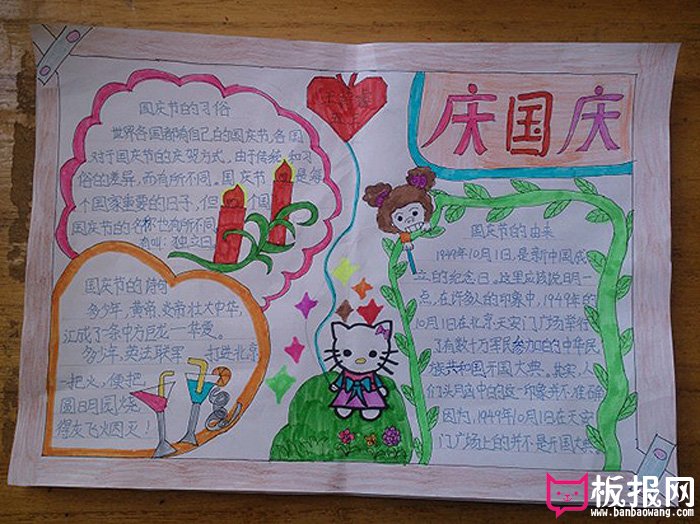 庆国庆
国庆节的习俗
世界各国都有自己的国庆节,各国
对于国庆节的庆贺方式,由于传统和习
俗的差异,而有所不同。国庆节是每
个国家重要的日子,但个国
国庆节的名称也有所不同,
有叫:独立日
国庆节的诗句
多少年,黄帝、炎帝壮大中华,
汇成了一条中方巨龙一华夏。
多少年,英法联军 打进北京
一把火,便把
圆明园烧
得灰飞烟灭!
国庆节的由来
1949年10月1日,是新中国成
立的纪念日。这里应该说明一
点,在许多人的印象中,1949年的
10月1日在北京天安门广场举行
了有数十万军民参加的中华民
族共和国开国大典。其实,人
们头脑中的这一印象并不准确
因为,1949年10月1日在天安
门广场上的并不是开国大典。
板报网
www.banbaowang.com